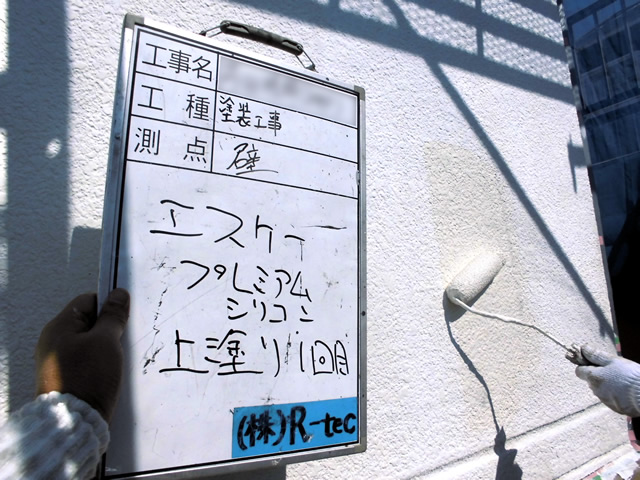 工事名
工種 塗装工事
測点 壁
エスケー
プレミアム
シリコン
上塗り1回目
(株)R-tec